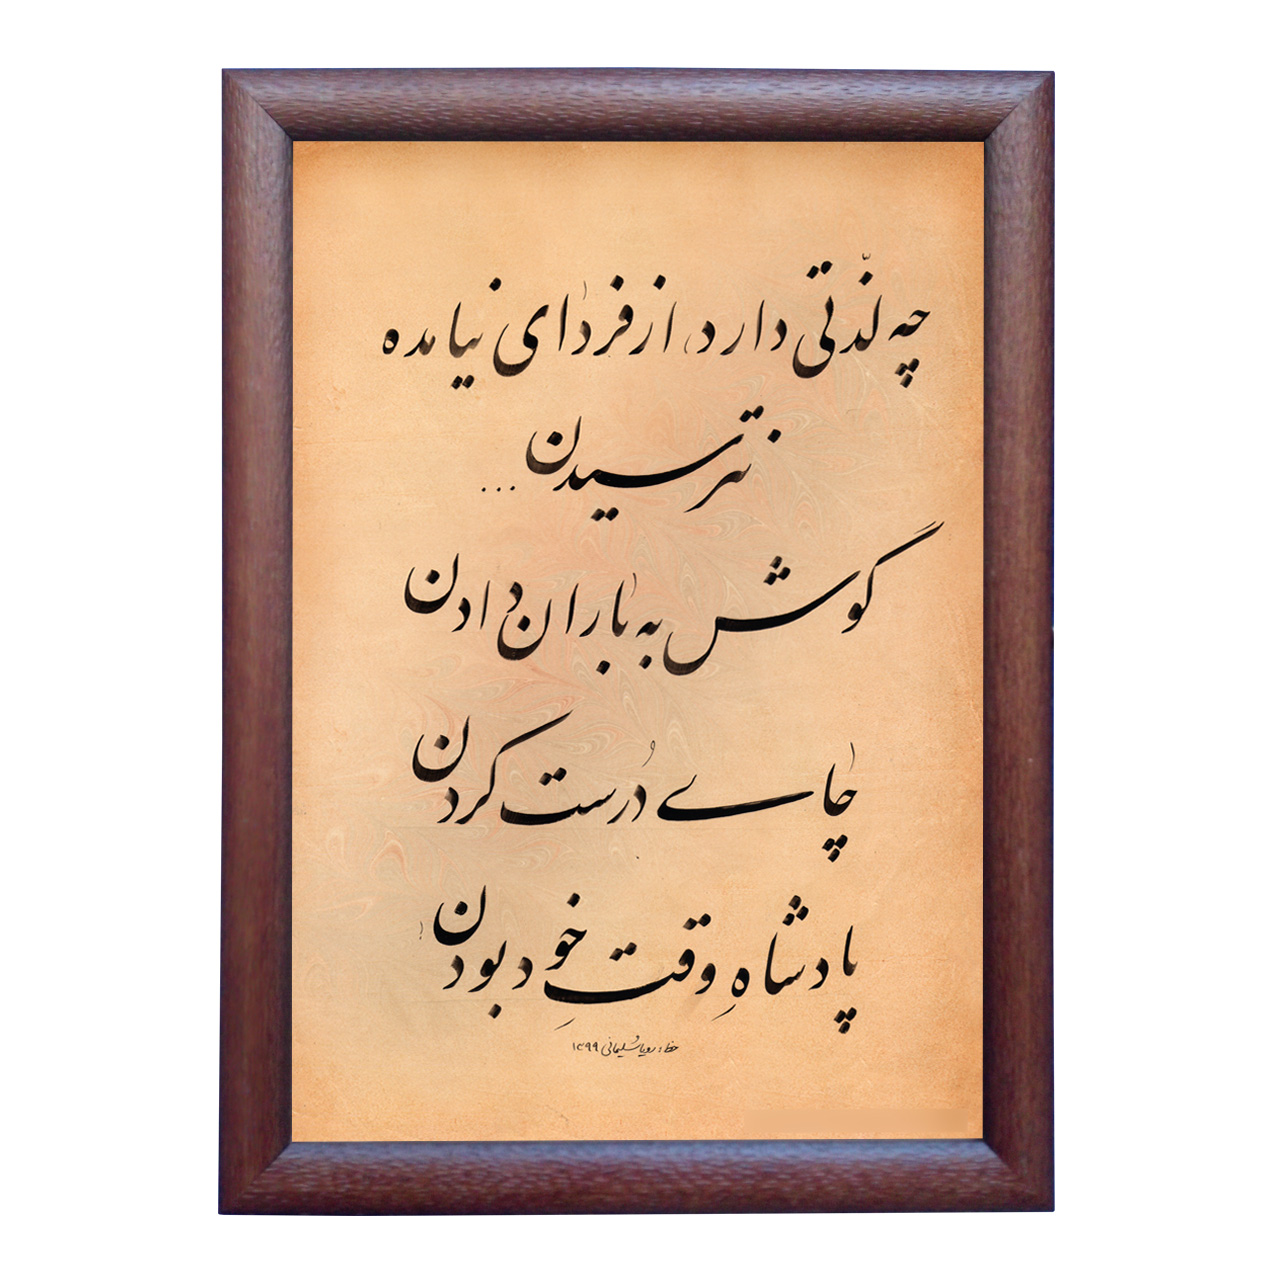 چه لذّتی دارد از فردای نیامده
نترسیدن ...
گوش به باران دادن
چای دُرست کردن
پادشاهِ وقتِ خود بودن
خط: رویا سلیمانی ۱۳۹۹